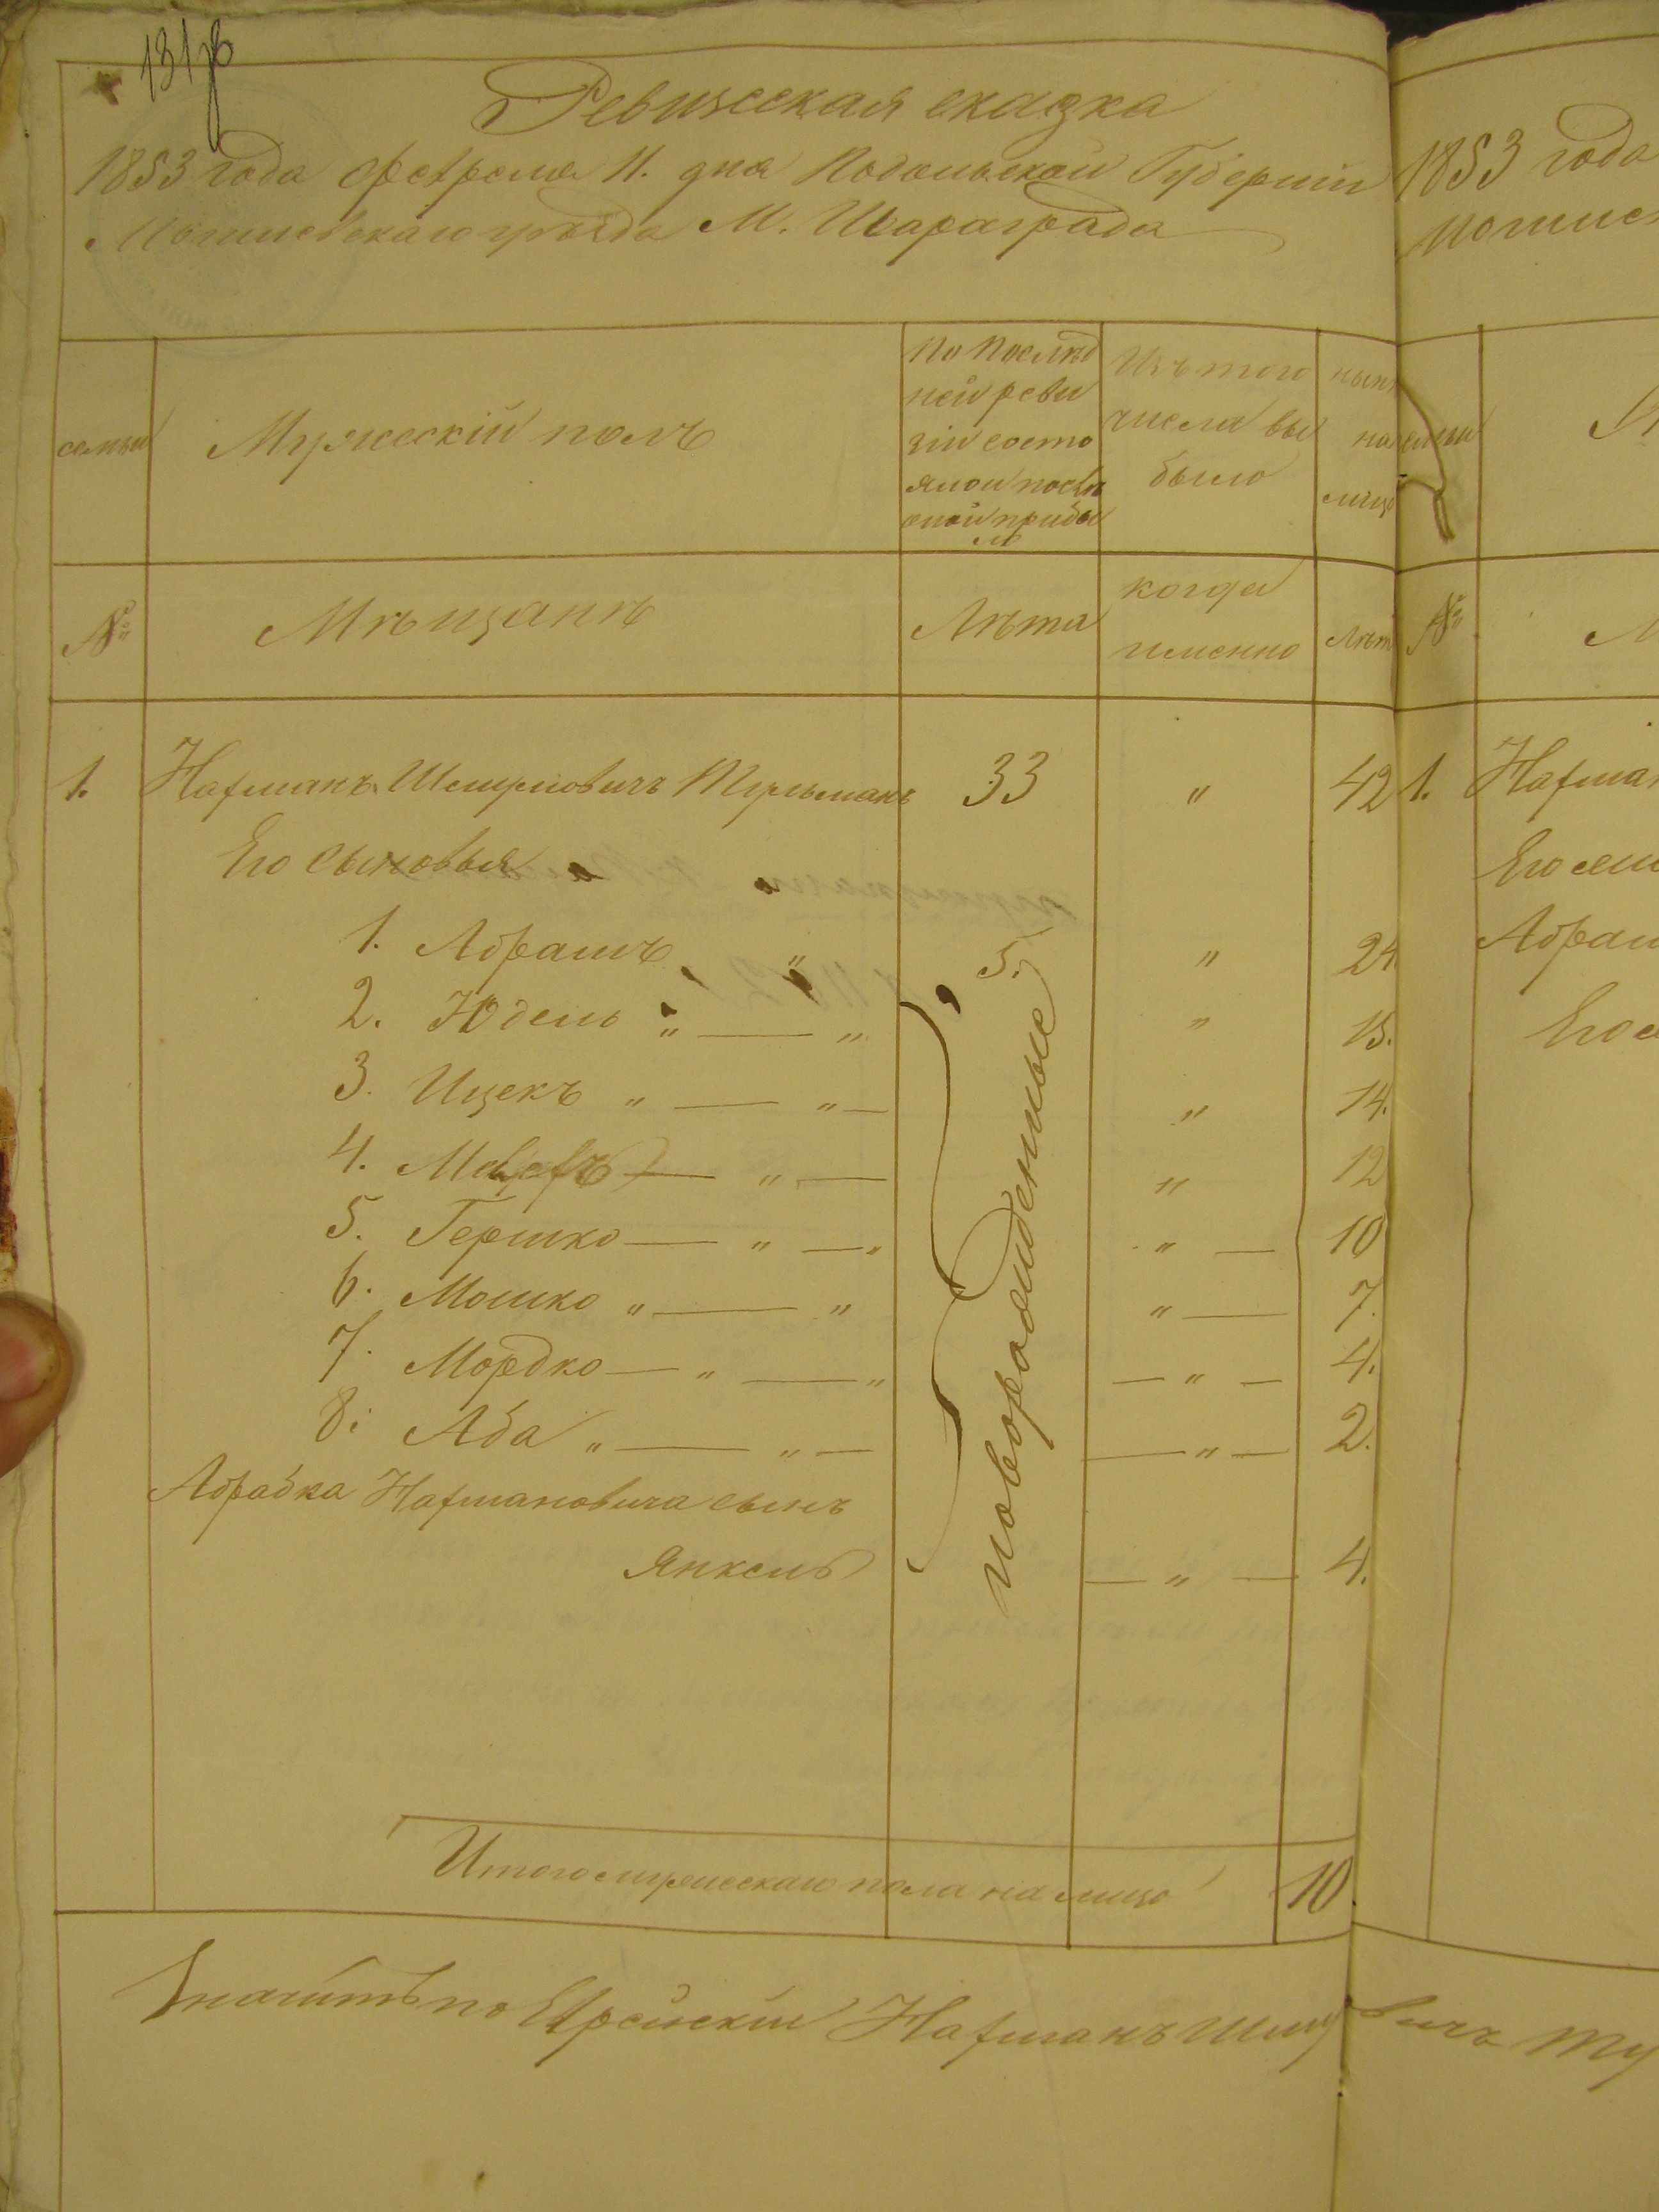 131
Ревижская сказка
1853 года февраля 11. дня Подольской Губернии
Могилевскаго уѣзда М. Шараграда
семьи
Мужескій полъ
По послѣд
ней реви
зіи состо
яло и послѣ
оной прибы
ло
Изъ того
числа вы
было
ныне
на
лицо
№
Мѣщанъ
Лѣта
когда
именно
Лѣт
1. Нафманъ Шмулiовичъ Турльманъ 33 " 42
Его сыновья
1. Абрамъ " 5. " 24
2. Юдель " — " " 15.
3. Ицекъ " — " — " 14.
4. — " — " 12
5. Гершко — " — " " — 10
6. Мошко " — " " — 7.
7. Мордко — " — " — " — 4.
8. Аба " — " — — " — 2.
новорожденные
Абрамка Нафмановича сынъ
Янкель — " — 4.
Итого мужескаго пола на лицо 10.
по Еврейски Нафманъ
1853 года
Могилев
семьи
№
1. Нафман
Его
Абрам
Его
вичъ Ту